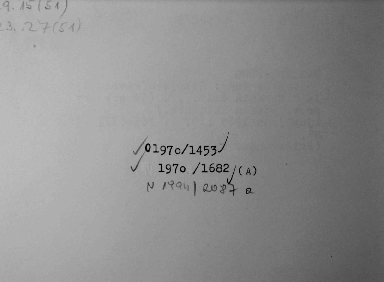 9.15(51)
23.27(51)
0197c/1453
1970 /1682/(A)
N 1994/2087 a